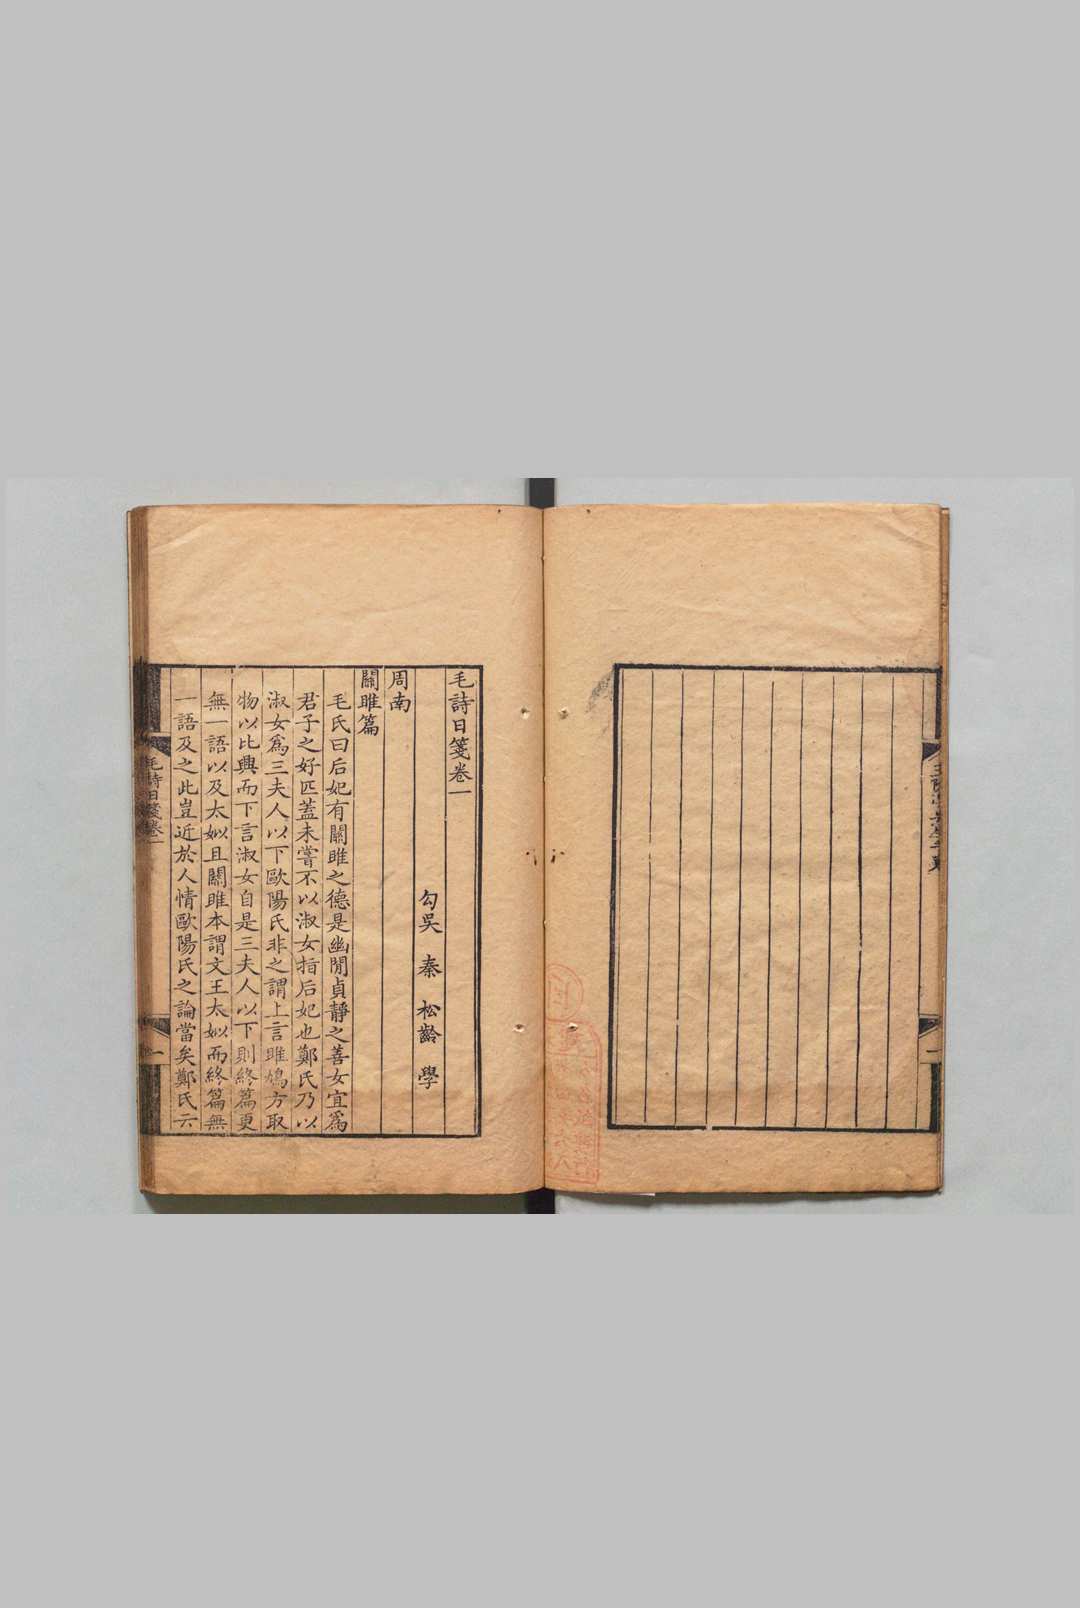 毛詩日箋卷一
勾吳 秦 松齡 學
周南
關雎篇
毛氏曰后妃有關雎之德是幽閒貞靜之善女宜爲
君子之好匹蓋未嘗不以淑女指后妃也鄭氏乃以
淑女爲三夫人以下歐陽氏非之謂上言雎鳩方取
物以比興而下言淑女自是三夫人以下則終篇更
無一語以及太姒且關雎本謂文王太姒而終篇無
一語及之此豈近於人情歐陽氏之論當矣鄭氏云
毛詩日箋卷一
一